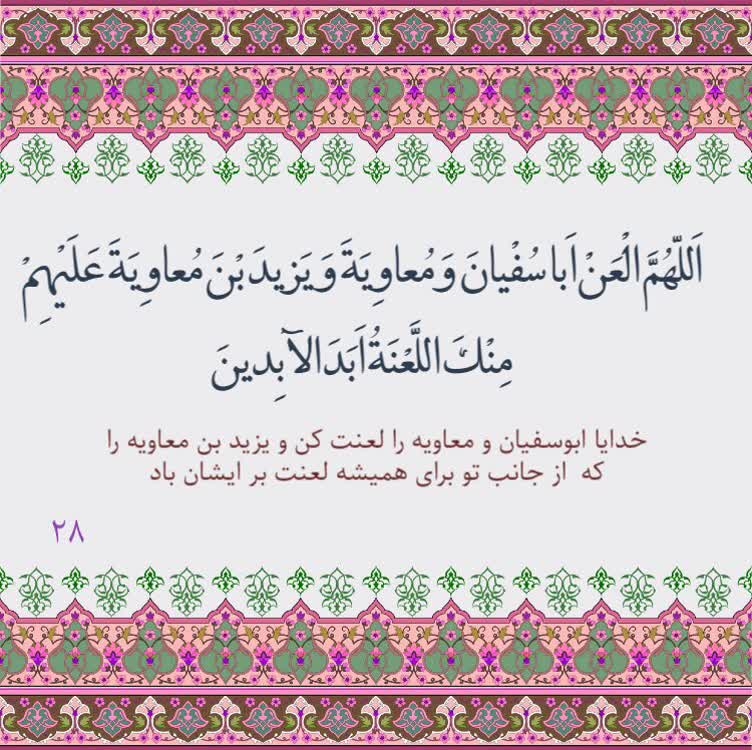 اَللّهُمَّ الْعَنْ اَباسُفْيانَ وَ مُعاوِيَةَ وَ يَزيدَ بْنَ مُعاوِيَةَ عَلَيْهِمْ
مِنْكَ اللَّعْنَةُ اَبَدَ الاۤبِدينَ
خدایا ابوسفیان و معاویه را لعنت کن و یزید بن معاویه را
که از جانب تو برای همیشه لعنت بر ایشان باد
۲۸